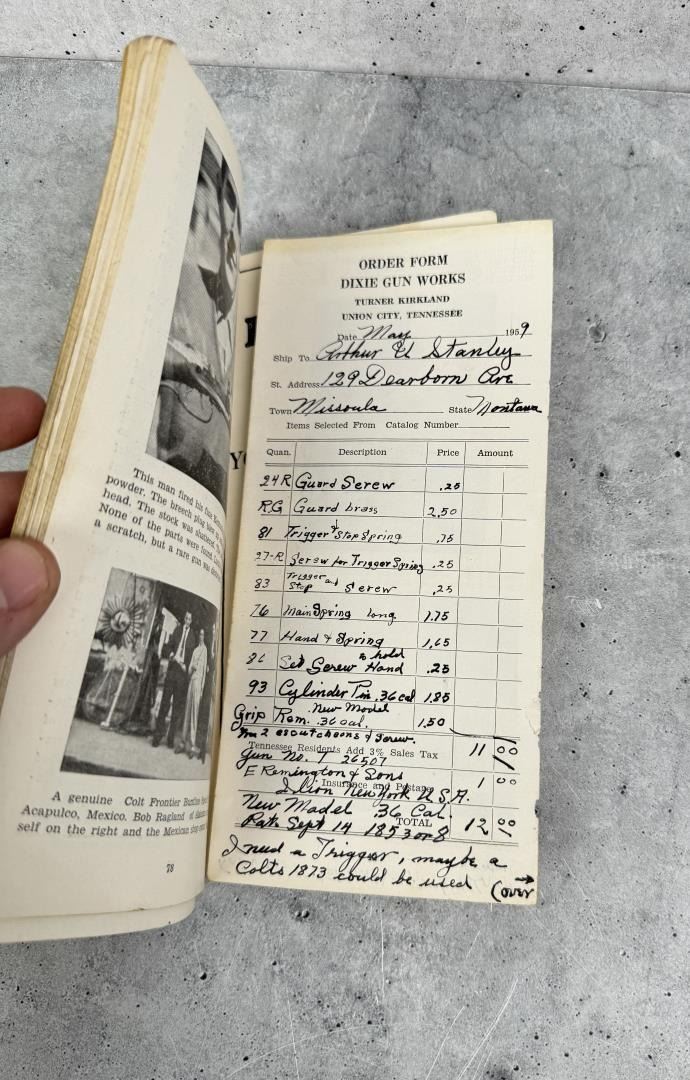 This man fired his fine
powder. The breech plug blew
head. The stock was shattered,
None of the parts were found.
a scratch, but a rare gun was
A genuine Colt Frontier Buntline
Acapulco, Mexico. Bob Ragland of
self on the right and the Mexican
78
ORDER FORM
DIXIE GUN WORKS
TURNER KIRKLAND
UNION CITY, TENNESSEE
Date May 1959
Ship To Arthur U Stanley
St. Address 129 Dearborn Ave
Town Missoula State Montana
Items Selected From Catalog Number
Quan. Description Price Amount
24R Guard Screw .25
R.G Guard brass 2.50
81 Trigger & Stop Spring .75
27-R Screw for Trigger Spring .25
83 Trigger and Stop Screw .25
76 Main Spring long 1.75
77 Hand & Spring 1.65
86 Set Screw to hold Hand .25
93 Cylinder Pin .36 cal 1.85
Grip Rem. New Model .36 cal. 1.50
2 escutcheons & screw.
Tennessee Residents Add 3% Sales Tax 11 00
Gun No. 26507
E Remington & Sons
Insurance and Postage 1 00
Ilion New York U.S.A.
New Model .36 Cal.
TOTAL 12 00
Pat. Sept 14 1853 or 8
I need a Trigger, maybe a
Colts 1873 could be used (over →